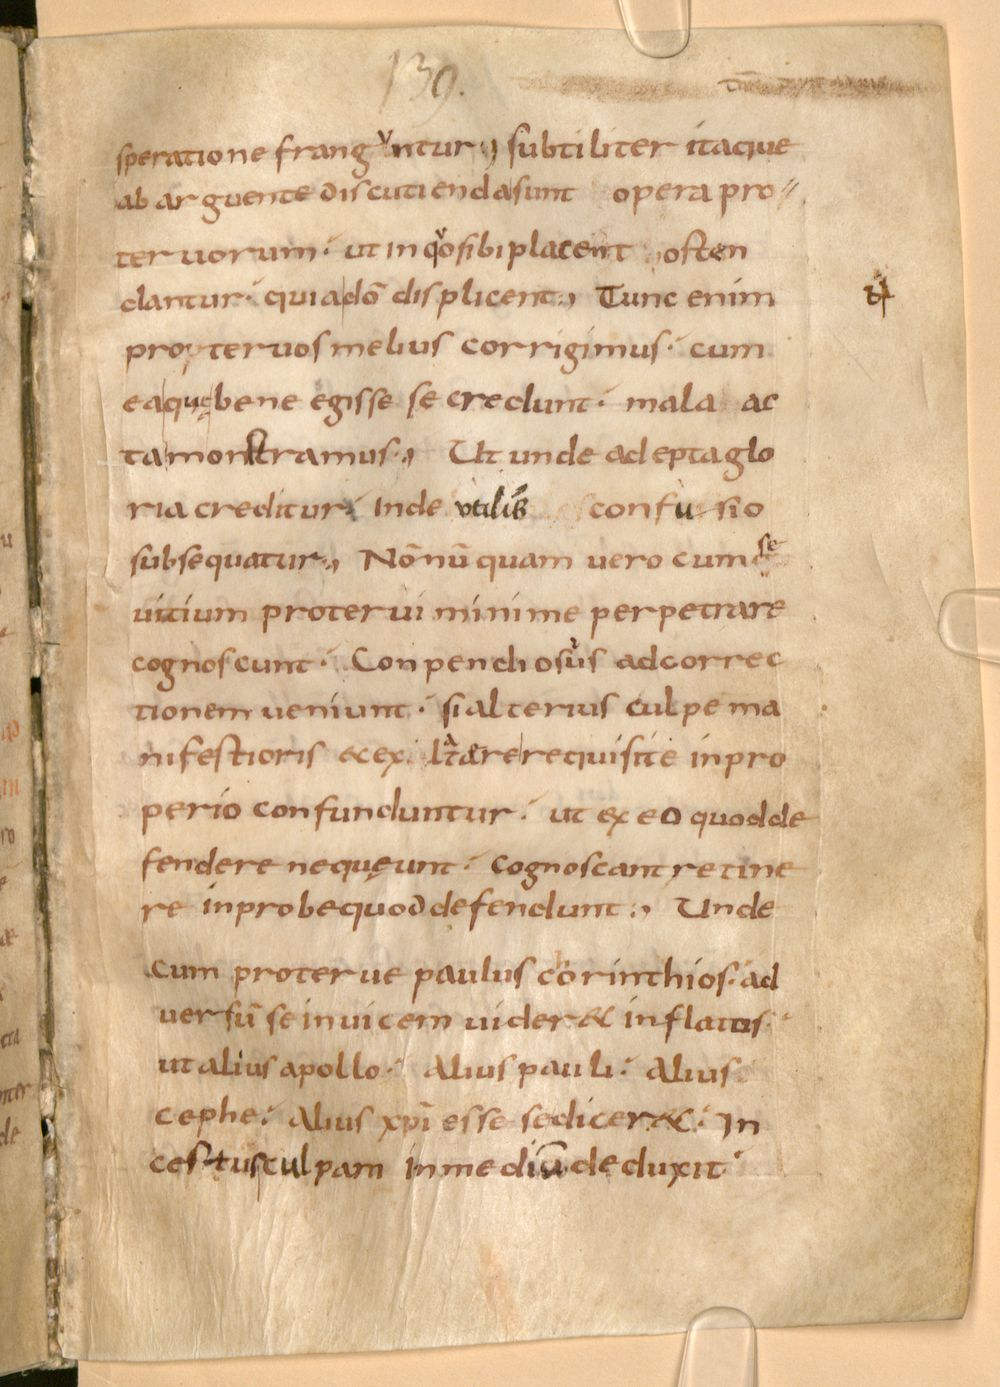 139.
speratione franguntur., subtiliter itaque
ab arguente discutienda sunt opera pro
teruorum. ut in quo sibi placent osten
dantur. quia dō displicent., Tunc enim
proteruos melius corrigimus. cum
ea quę bene egisse se credunt. mala ac
ta monstramus., Ut unde adepta glo
ria creditur. Inde utilis confusio
subsequatur., Nōnū quam vero cum se
uitium proterui minime perpetrare
cognoscunt. Conpendiosius ad correc
tionem ueniunt. si alterius culpe ma
nifestioris & ex latere requisite inpro
perio confunduntur. ut ex eo quod de
fendere nequęunt. cognoscant retine
re inprobe quod defendunt., Unde
cum proterue paulus corinthios. ad
uersū se inuicem uider& inflatus.
ut alius apollo. Alius pauli. Alius
cephe. Alius xp̄i esse se dicer&. In
cestus culpam in mediū deduxit